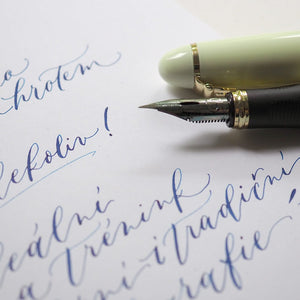 hrotem
lekoliv!
eální
a trénink
ní i tradiční
grafie!